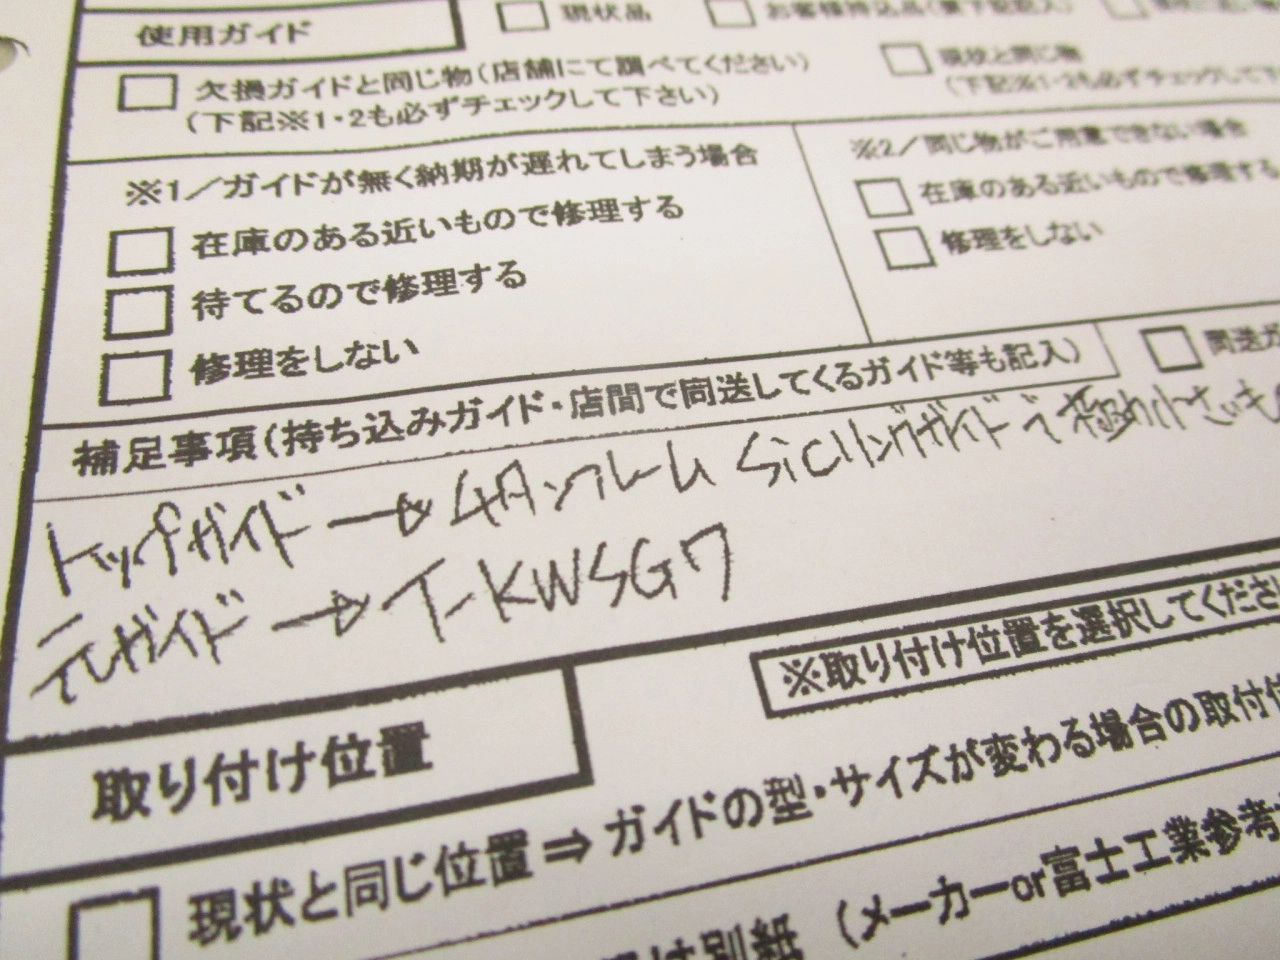 使用ガイド
現状品
お客様持込品(要下記記入)
欠損ガイドと同じ物(店舗にて調べてください)
(下記※1・2も必ずチェックして下さい)
現状と同じ物
(下記※1・2も必ずチェックして下
※1/ガイドが無く納期が遅れてしまう場合
在庫のある近いもので修理する
待てるので修理する
修理をしない
※2/同じ物がご用意できない場合
在庫のある近いもので修理する
修理をしない
補足事項(持ち込みガイド・店間で同送してくるガイド等も記入)
同送ガ
トップガイド→4Aフレーム SiCリングガイドで極力小さいもの
元ガイド→T-KWSG7
取り付け位置
※取り付け位置を選択してくださ
現状と同じ位置⇒ガイドの型・サイズが変わる場合の取付位
別紙(メーカーor富士工業参考